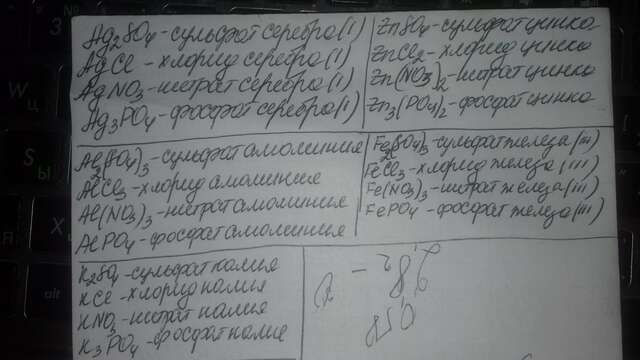 Ag2SO4 - сульфат серебра (I)
AgCl - хлорид серебра (I)
AgNO3 - нитрат серебра (I)
Ag3PO4 - фосфат серебра (I)
ZnSO4 - сульфат цинка
ZnCl2 - хлорид цинка
Zn(NO3)2 - нитрат цинка
Zn3(PO4)2 - фосфат цинка
Al2(SO4)3 - сульфат алюминия
AlCl3 - хлорид алюминия
Al(NO3)3 - нитрат алюминия
AlPO4 - фосфат алюминия
Fe2(SO4)3 - сульфат железа (III)
FeCl3 - хлорид железа (III)
Fe(NO3)3 - нитрат железа (III)
FePO4 - фосфат железа (III)
K2SO4 - сульфат калия
KCl - хлорид калия
KNO3 - нитрат калия
K3PO4 - фосфат калия